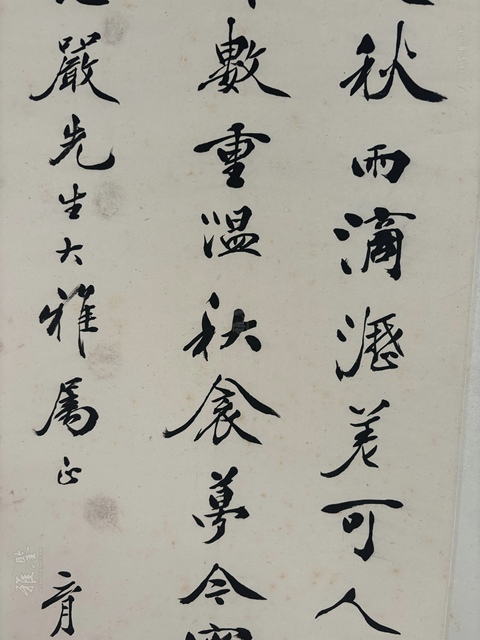 秋雨滴瀝差可人
數重温秋衾夢今
嚴先生大雅屬正
育